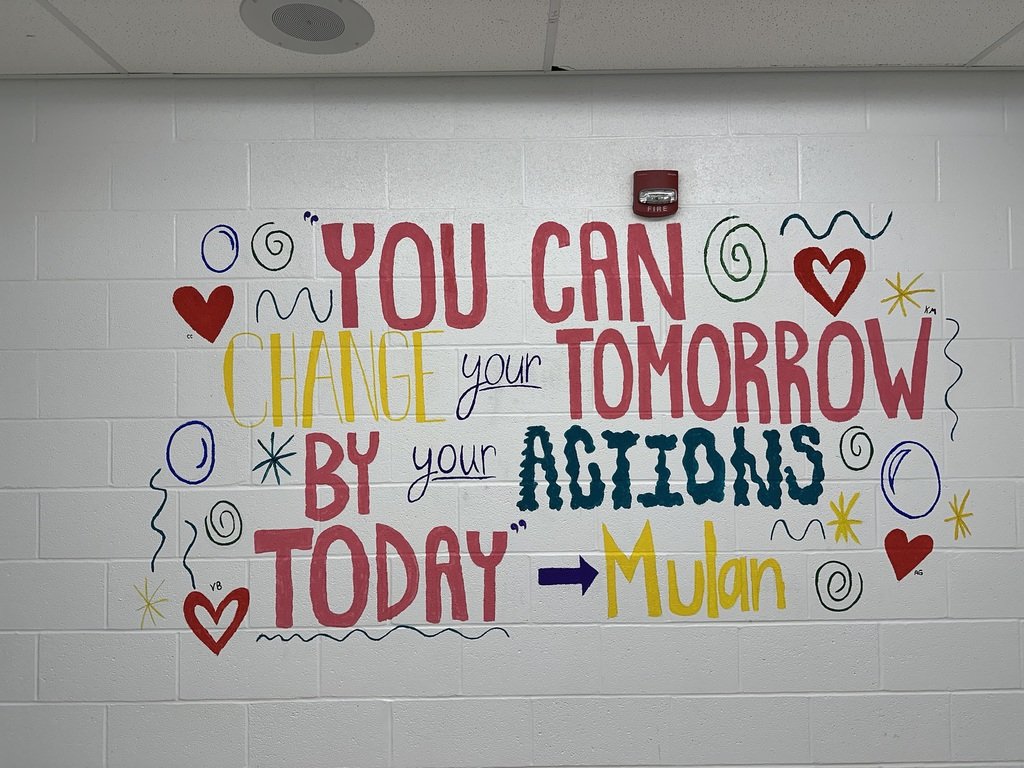 FIRE
"YOU CAN
CHANGE your TOMORROW
BY your ACTIONS
TODAY" → Mulan
CC
KM
VB
AG